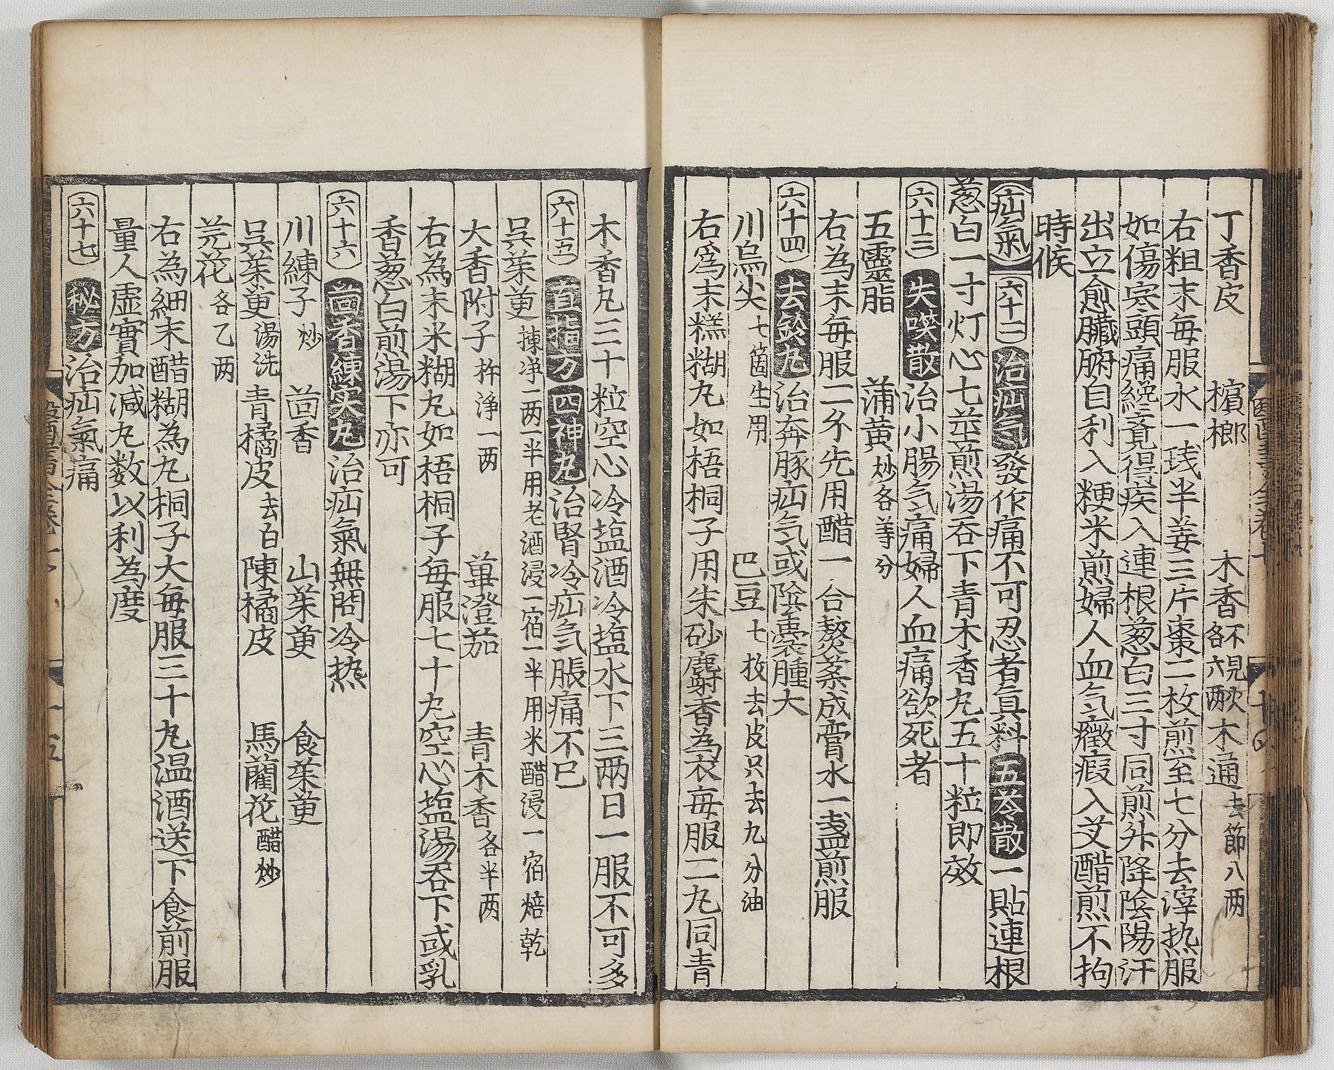 丁香皮 檳榔 木香不見火各六两 木通去節八两
右粗末每服水一琖半姜三片棗二枚煎至七分去滓热服
如傷寒頭痛纔覚得疾入連根葱白三寸同煎升降陰陽汗
出立愈臟腑自利入粳米煎婦人血气癥瘕入艾醋煎不拘
時候
疝氣 六十二 治疝气發作痛不可忍者眞料五苓散一貼連根
葱白一寸灯心七莖煎湯吞下青木香丸五十粒即效
六十三 失㗜散治小腸气痛婦人血痛欲死者
五靈脂 蒲黄炒各等分
右為末每服二分先用醋一合熬藥成膏水一盞煎服
六十四 去鈴丸治奔豚疝气或陰囊腫大
川烏尖七箇生用 巴豆七枚去皮只去九分油
右爲末糕糊丸如梧桐子用朱砂麝香為衣每服二丸同青
木香丸三十粒空心冷塩酒冷塩水下三两日一服不可多
六十五 直指方 四神丸治腎冷疝气脹痛不已
吳茱萸揀净一两半用老酒浸一宿一半用米醋浸一宿焙乾
大香附子杵净一两 蓽澄茄 青木香各半两
右為末米糊丸如梧桐子每服七十丸空心塩湯吞下或乳
香葱白煎湯下亦可
六十六 茴香練实丸治疝氣無問冷热
川練子炒 茴香 山茱萸 食茱萸
吳茱萸湯洗 青橘皮去白 陳橘皮 馬藺花醋炒
芫花各乙两
右為細末醋糊為丸桐子大每服三十丸温酒送下食前服
量人虛實加减丸数以利為度
六十七 秘方治疝氣痛